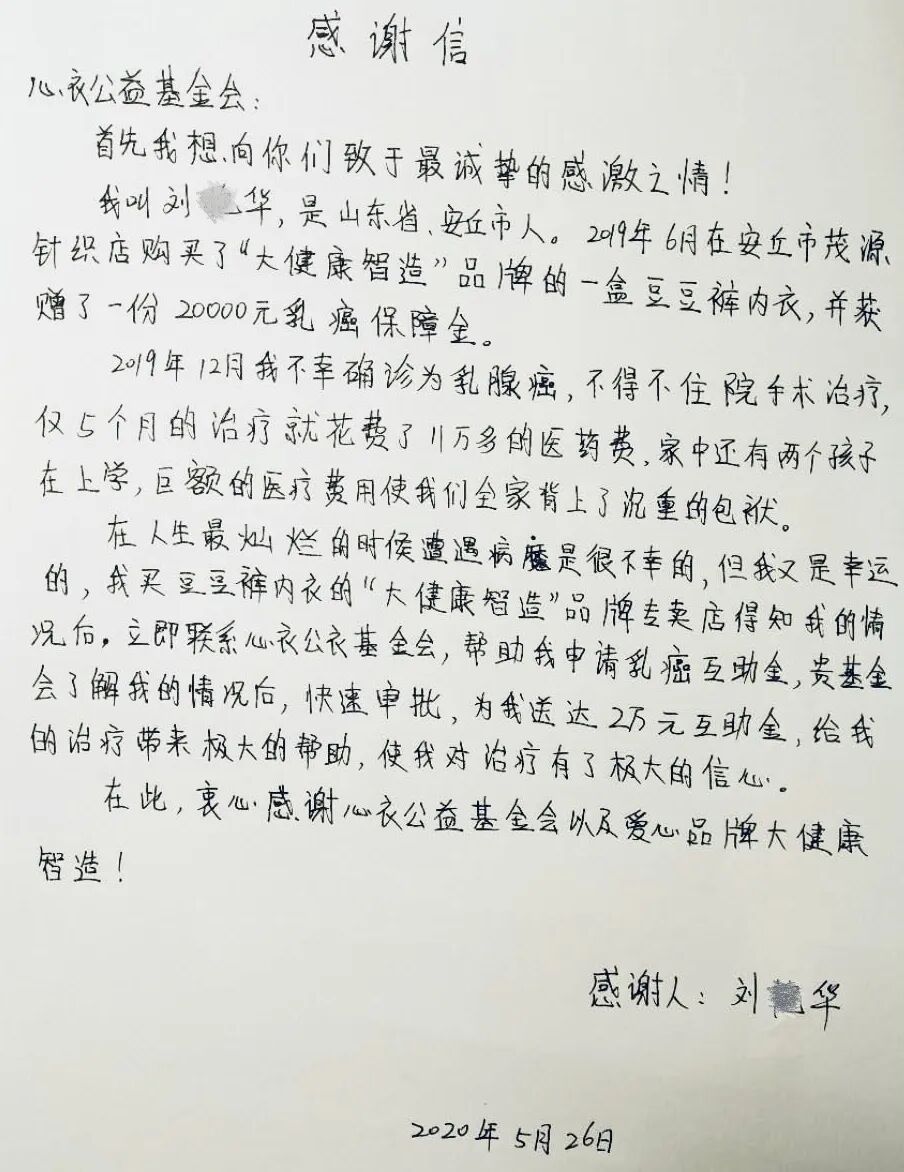 感谢信
心衣公益基金会:
首先我想向你们致于最诚挚的感激之情!
我叫刘华,是山东省、安丘市人。2019年6月在安丘市茂源
针织店购买了“大健康智造”品牌的一盒豆豆裤内衣,并获
赠了一份20000元乳癌保障金。
2019年12月我不幸确诊为乳腺癌,不得不住院手术治疗,
仅5个月的治疗就花费了11万多的医药费、家中还有两个孩子
在上学,巨额的医疗费用使我们全家背上了沉重的包袱。
在人生最灿烂的时候遭遇病魔是很不幸的,但我又是幸运
的,我买豆豆裤内衣的“大健康智造”品牌专卖店得知我的情
况后,立即联系心衣公衣基金会,帮助我申请乳癌互助金,贵基金
会了解我的情况后,快速审批,为我送达2万元互助金,给我
的治疗带来极大的帮助,使我对治疗有了极大的信心。
在此,衷心感谢心衣公益基金会以及爱心品牌大健康
智造!
感谢人:刘华
2020年5月26日